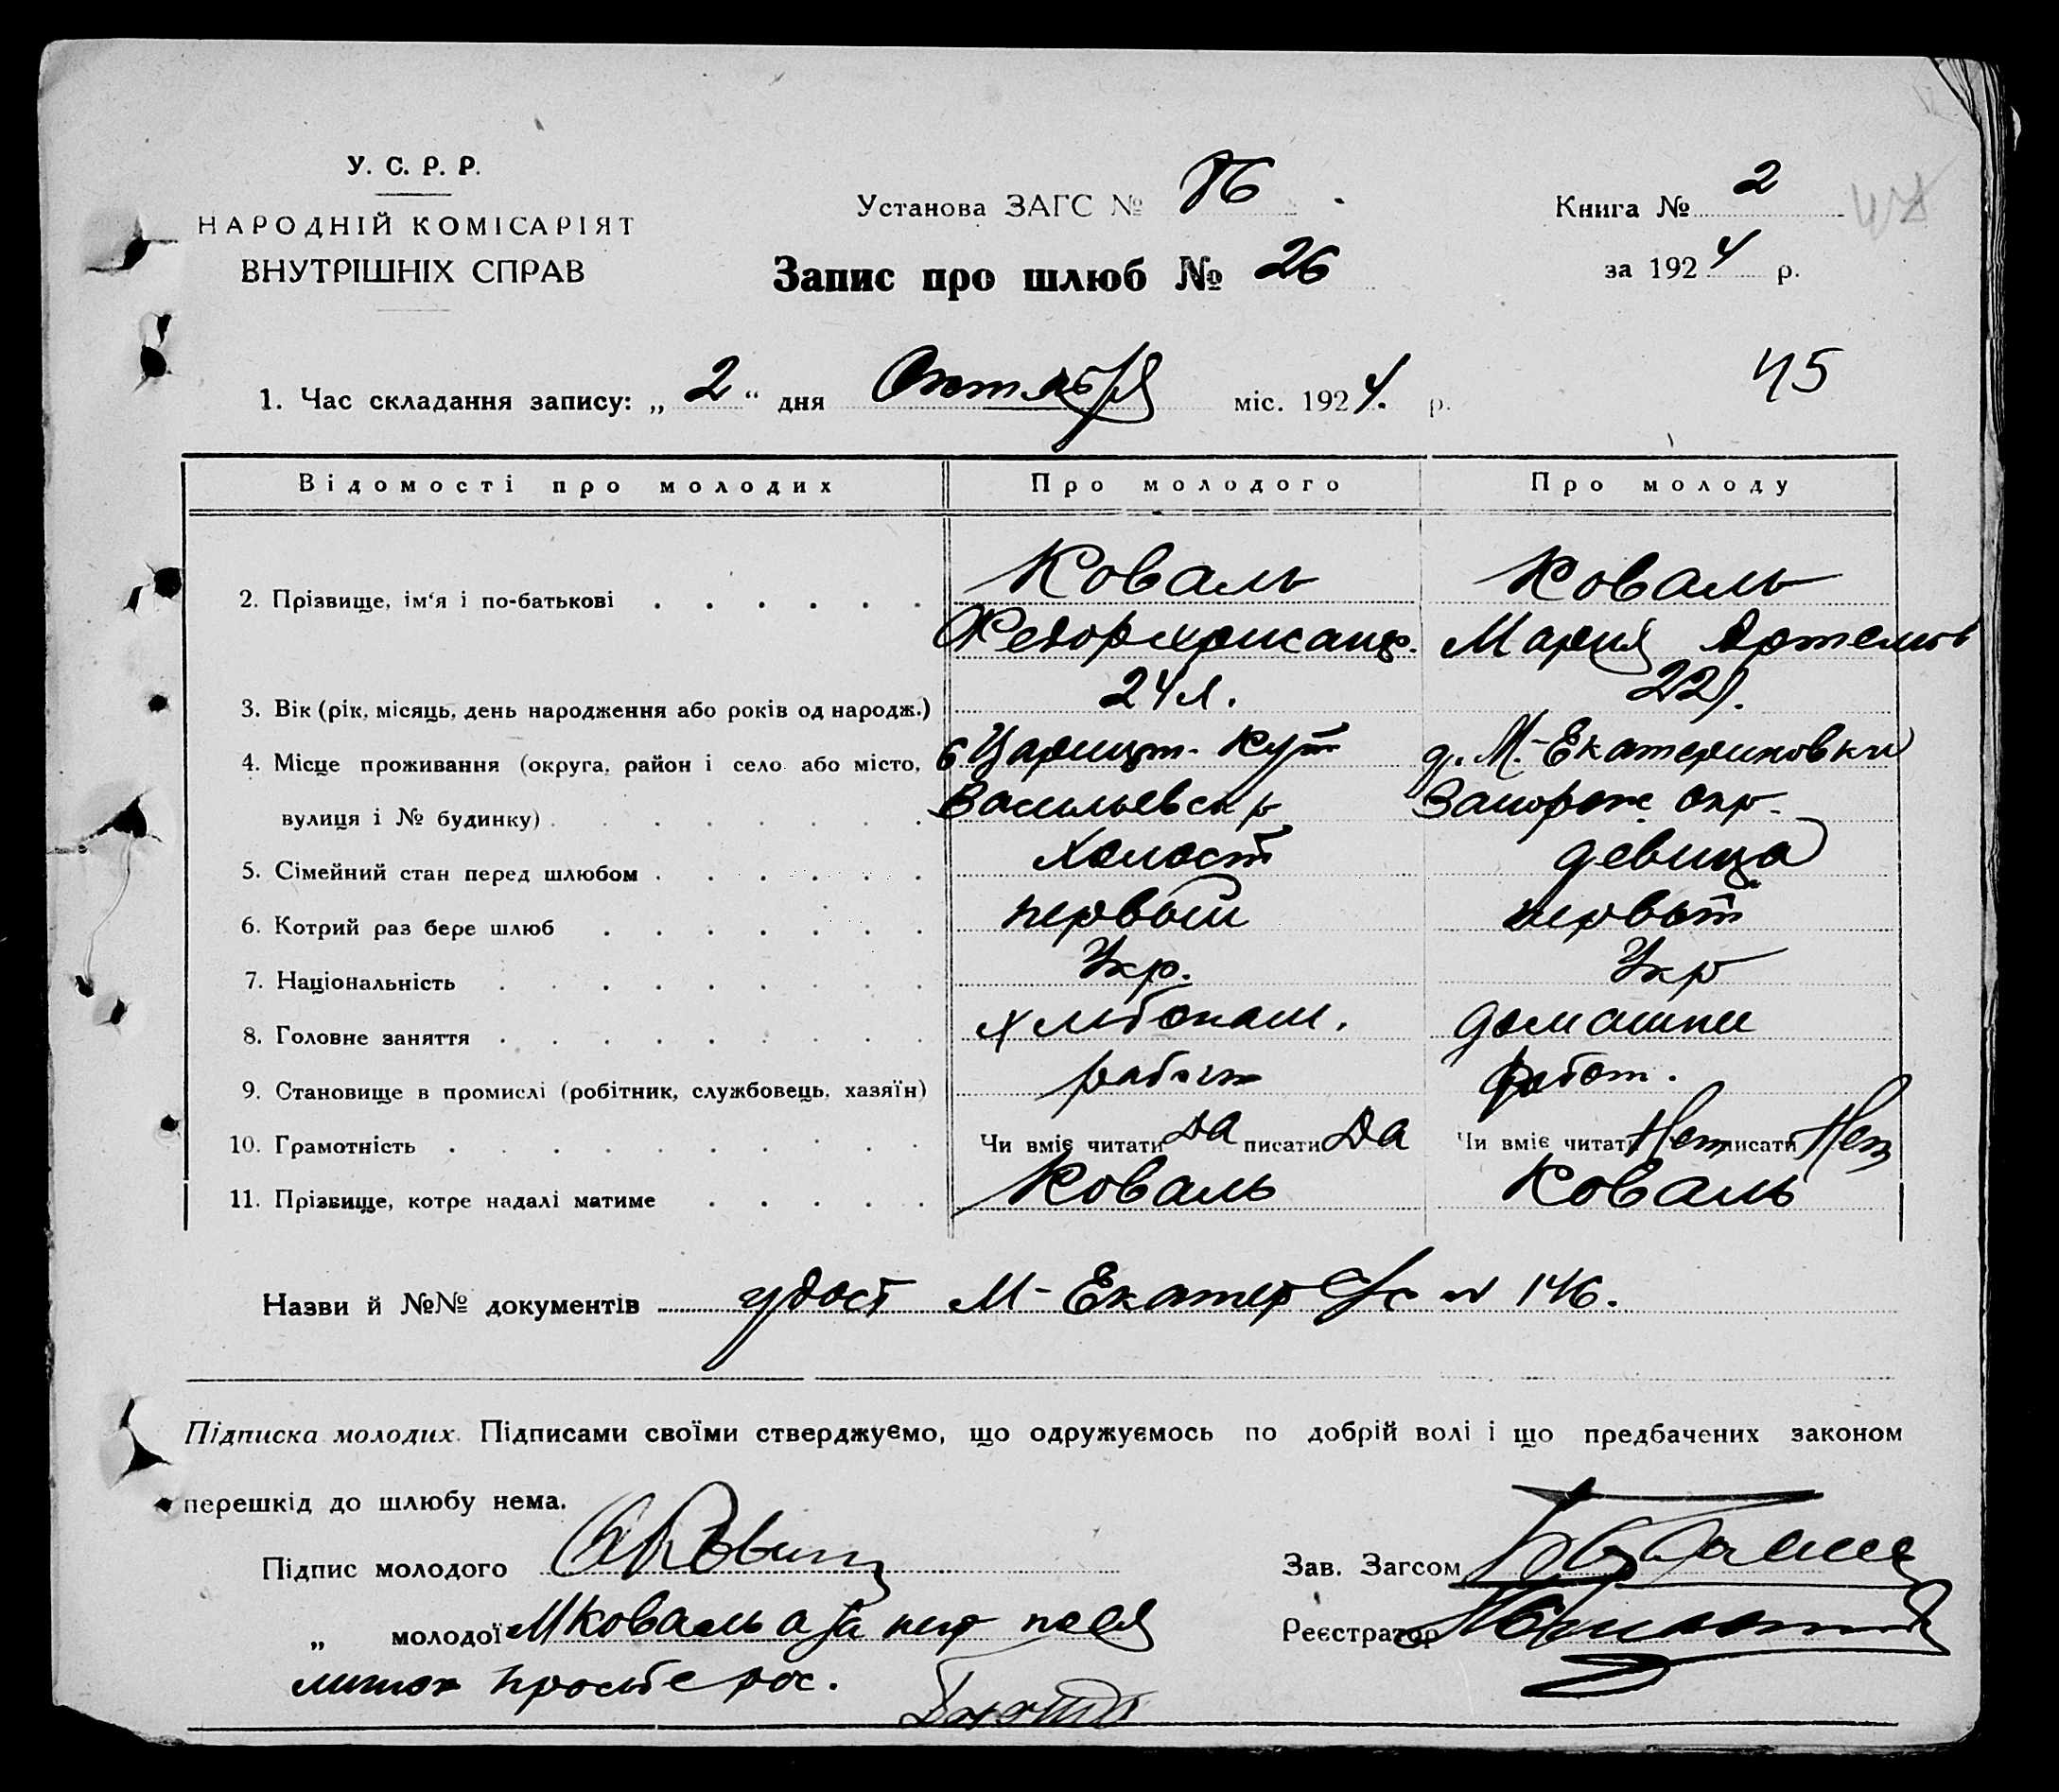 У. С. Р. Р.
НАРОДНІЙ КОМІСАРІЯТ
ВНУТРІШНІХ СПРАВ
Установа ЗАГС № 86
Книга № 2
за 1924 р.
Запис про шлюб № 26
45
1. Час складання запису: „ 2 “ дня Октября міс. 1924. р.
Відомості про молодих Про молодого Про молоду
2. Прізвище, ім'я і по-батькові Коваль Коваль
Федор Мария Артемов
3. Вік (рік, місяць, день народження або років од народж.) 24 л. 22 л.
4. Місце проживання (округа, район і село або місто, с Царицын. Кут д. М.-Екатериновки
вулиця і № будинку) Васильевск р Запорож. окр.
5. Сімейний стан перед шлюбом холост девица
6. Котрий раз бере шлюб первый первый
7. Національність Укр. Укр
8. Головне заняття хлібопаш. домашни
9. Становище в промислі (робітник, службовець, хазяїн) работ работ.
10. Грамотність Чи вміє читати да писати да Чи вміє читати Нет писати Нет
11. Прізвище, котре надалі матиме Коваль Коваль
Назви й №№ документів удост М-Екатер с/с № 146.
Підписка молодих. Підписами своїми стверджуємо, що одружуємось по добрій волі і що предбачених законом
перешкід до шлюбу нема.
Підпис молодого
Зав. Загсом
„ молодої М Коваль а за неї
Реєстратор
просьбе рос.